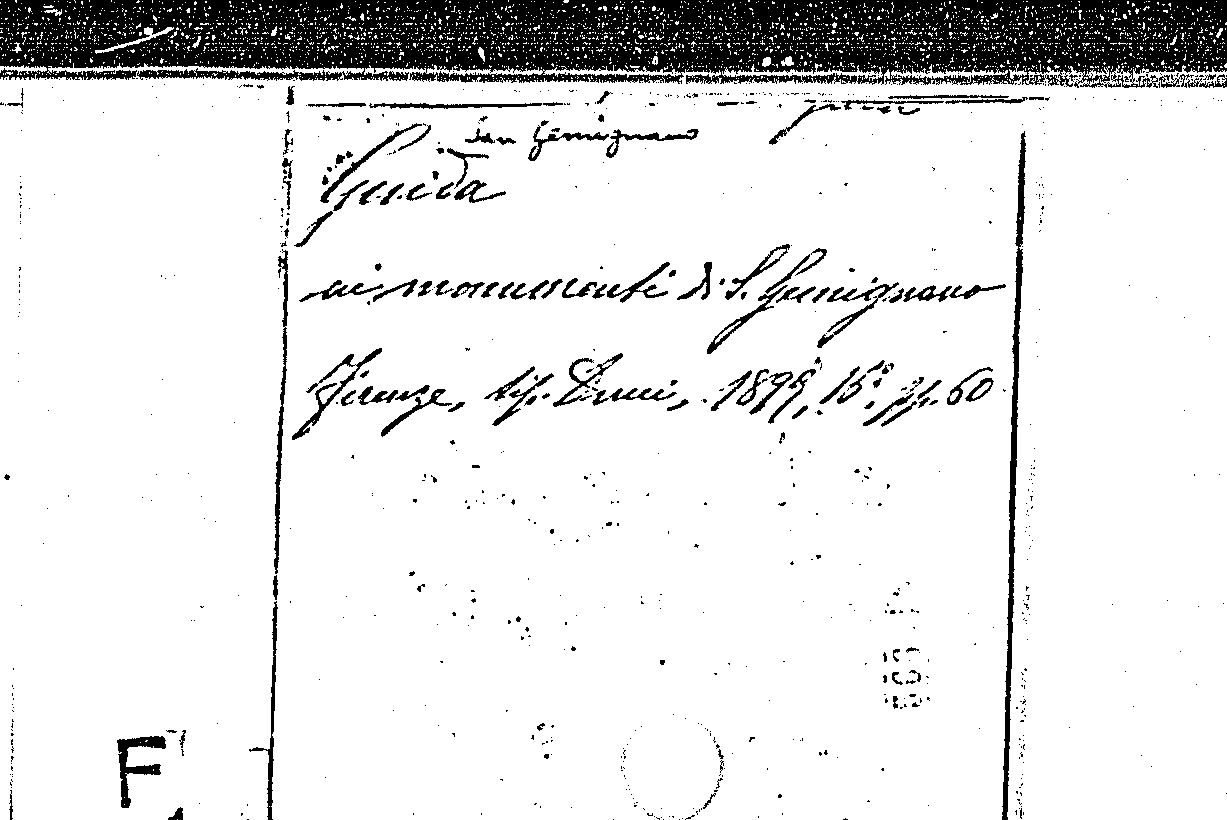 San Gemignano
Guida
ai monumenti di S. Gemignano
Firenze, tip. Ducci, 1899, 16º pp. 60
F